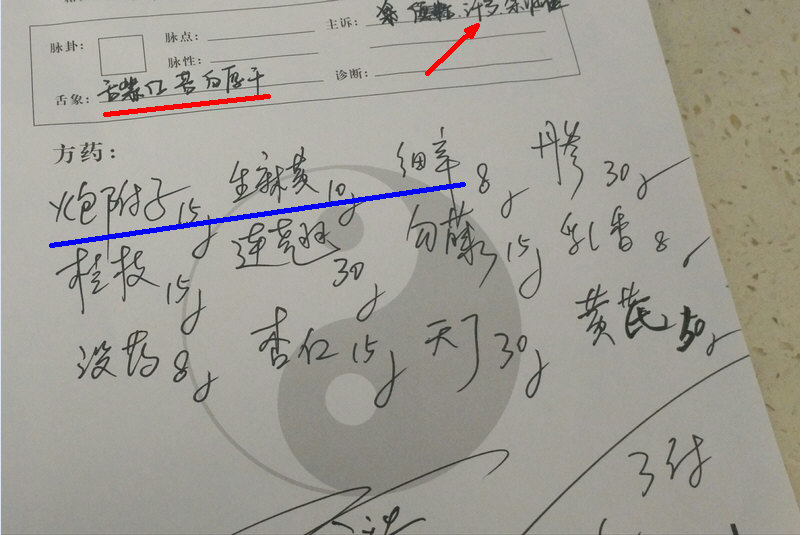 主诉:
脉卦: 脉点:
脉性:
舌象: 舌紫红苔白厚干 诊断:
方药:
炮附子15g 生麻黄10g 细辛8g 丹参30g
桂枝15g 连翘30g 勾藤15g 乳香8g
没药8g 杏仁15g 天丁30g 黄芪50g
3付